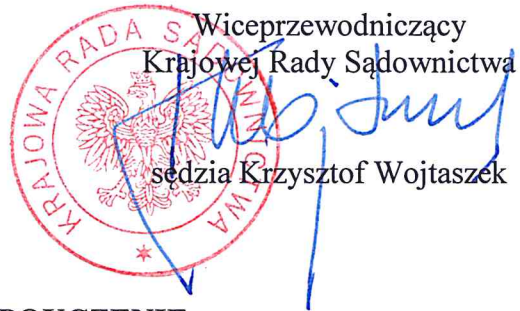 Wiceprzewodniczący
Krajowej Rady Sądownictwa
KRAJOWA RADA SĄDOWNICTWA
sędzia Krzysztof Wojtaszek
POUCZENIE